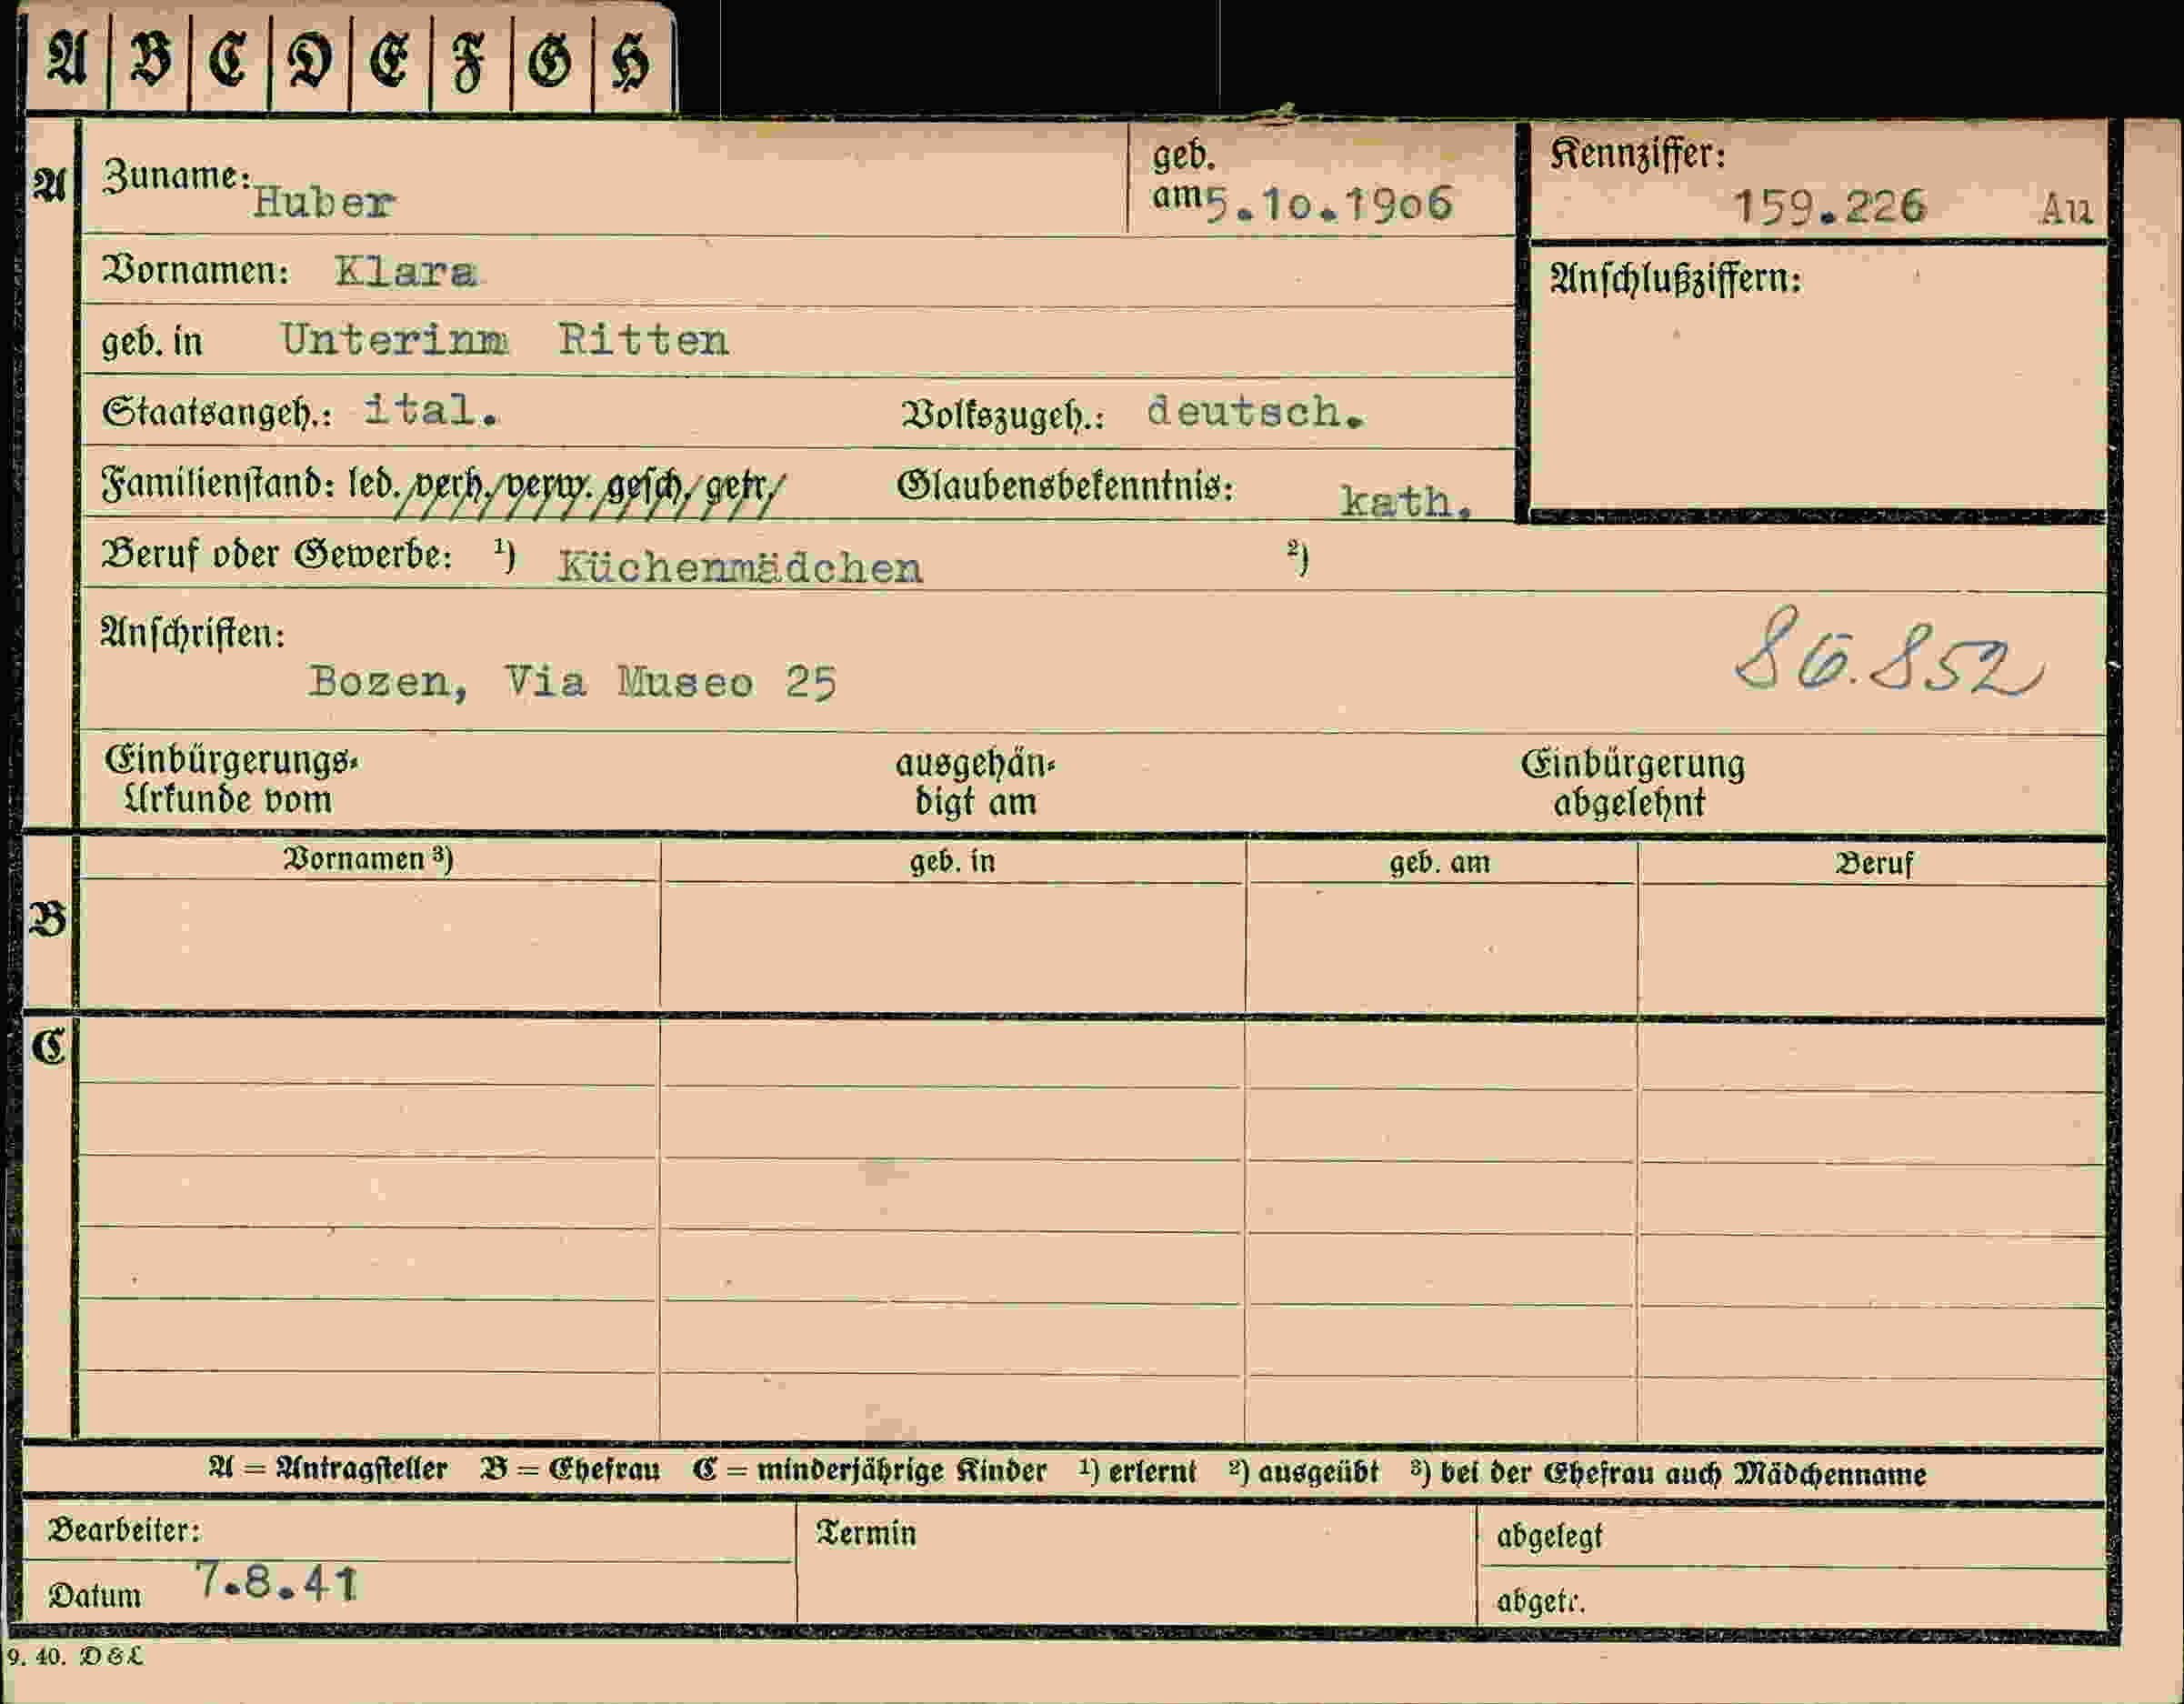 A B C D E F G H
A
Zuname: Huber
geb. am 5.10.1906
Kennziffer: 159.226 Au
Vornamen: Klara
Anschlußziffern:
geb. in Unterinn Ritten
Staatsangeh.: ital. Volkszugeh.: deutsch.
Familienstand: led. verh. verw. gesch. getr. Glaubensbekenntnis: kath.
Beruf oder Gewerbe: ¹) Küchenmädchen ²)
Anschriften:
86.852
Bozen, Via Museo 25
Einbürgerungs- ausgehän- Einbürgerung
Urkunde vom digt am abgelehnt
Vornamen ³) geb. in geb. am Beruf
B
C
A = Antragsteller B = Ehefrau C = minderjährige Kinder ¹) erlernt ²) ausgeübt ³) bei der Ehefrau auch Mädchenname
Bearbeiter: Termin abgelegt
Datum 7.8.41 abgetr.
9. 40. D & L